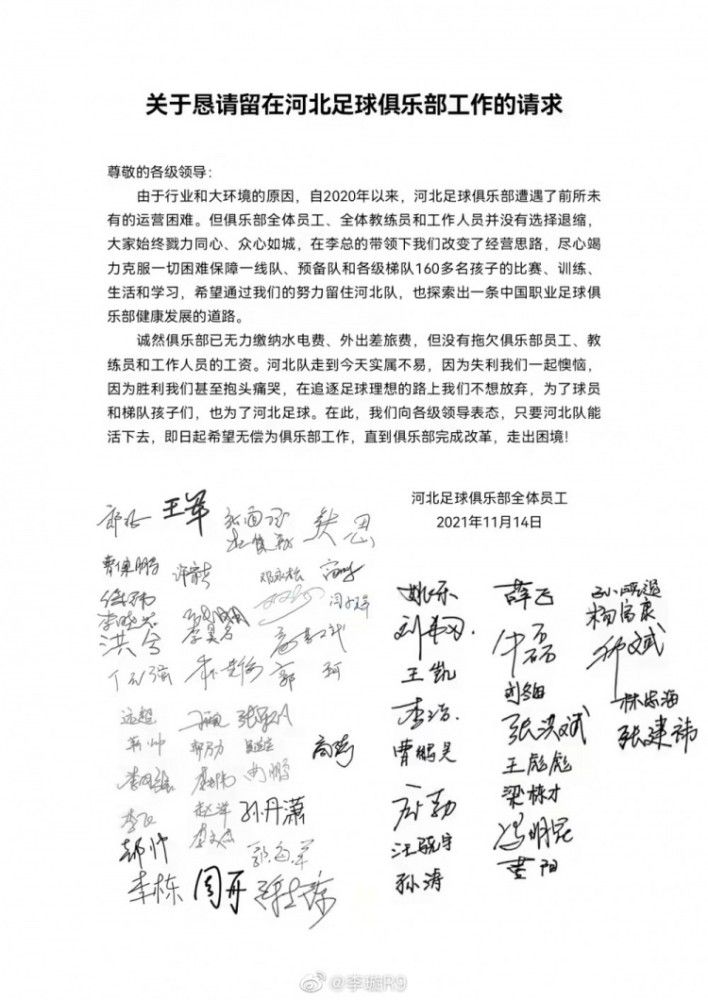 关于恳请留在河北足球俱乐部工作的请求
尊敬的各级领导：
由于行业和大环境的原因，自2020年以来，河北足球俱乐部遭遇了前所未
有的运营困难。但俱乐部全体员工、全体教练员和工作人员并没有选择退缩，
大家始终戮力同心、众心如城，在李总的带领下我们改变了经营思路，尽心竭
力克服一切困难保障一线队、预备队和各级梯队160多名孩子的比赛、训练、
生活和学习，希望通过我们的努力留住河北队，也探索出一条中国职业足球俱
乐部健康发展的道路。
诚然俱乐部已无力缴纳水电费、外出差旅费，但没有拖欠俱乐部员工、教
练员和工作人员的工资。河北队走到今天实属不易，因为失利我们一起懊恼，
因为胜利我们甚至抱头痛哭，在追逐足球理想的路上我们不想放弃，为了球员
和梯队孩子们，也为了河北足球。在此，我们向各级领导表态，只要河北队能
活下去，即日起希望无偿为俱乐部工作，直到俱乐部完成改革，走出困境！
河北足球俱乐部全体员工
2021年11月14日
王军
姚乐
薛飞
杨富康
王凯
李浩
张洪斌
林忠海
张建祎
曹鹏昊
王彪彪
梁栋才
高奇
孙丹潇
汪晓宇
冯明昆
孙涛
黄阳
郝帅
李栋
周丹
@李璇R9